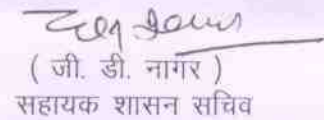 ( जी. डी. नागर )
सहायक शासन सचिव